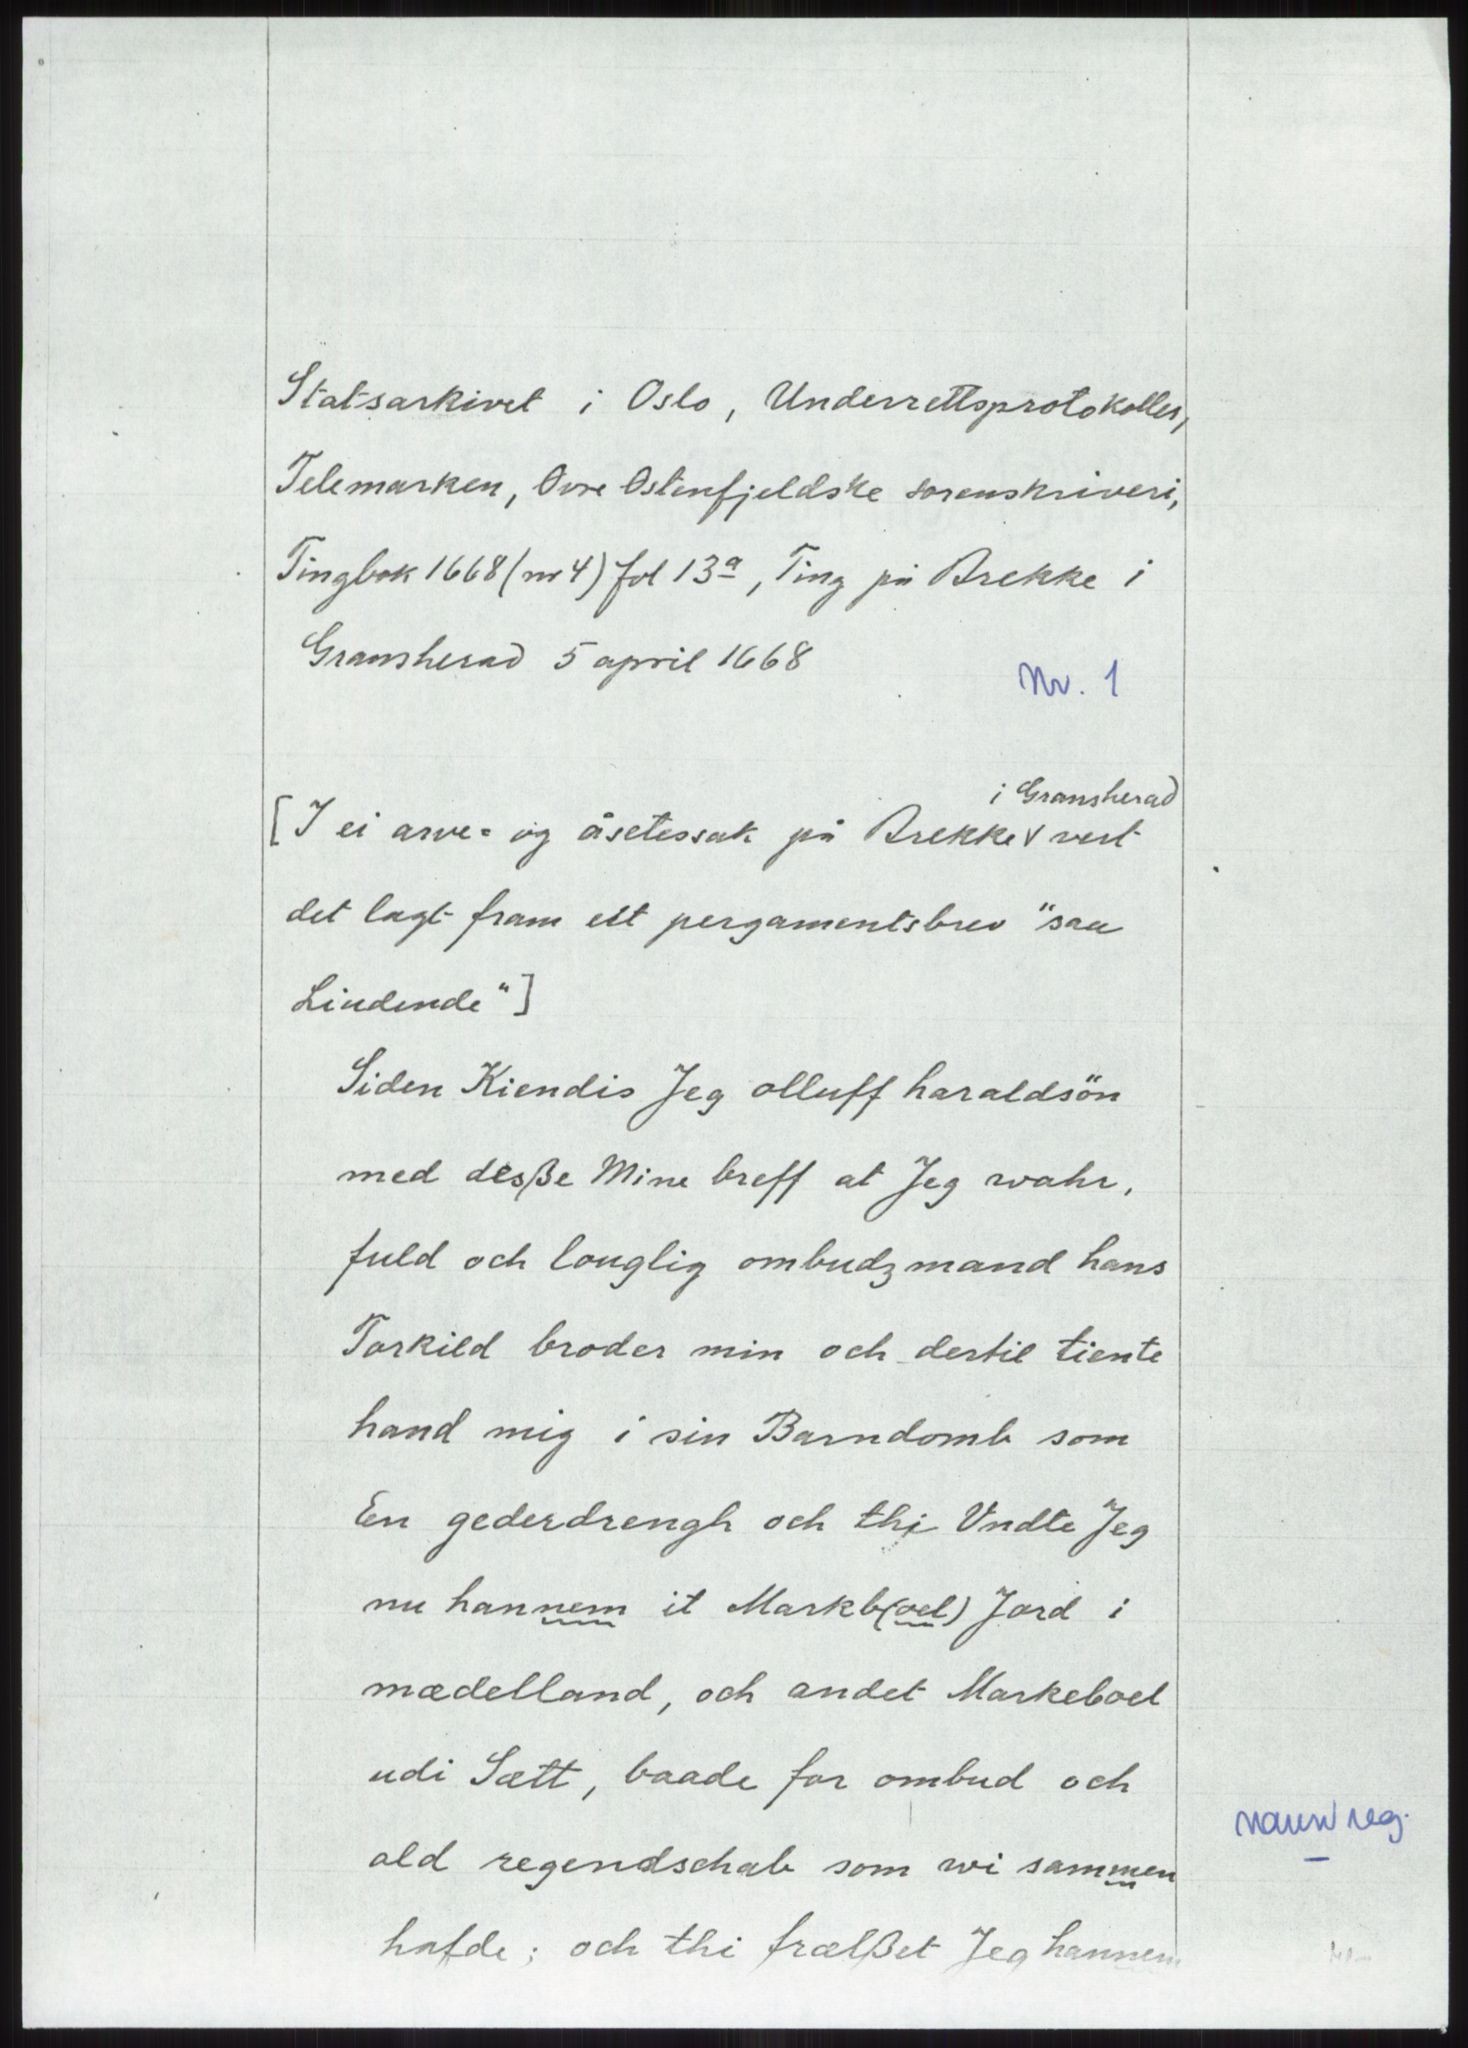 Statsarkivet i Oslo, Underrettsprotokoller,
Telemarken, Øvre Østenfjeldske sorenskriveri,
Tingbok 1668 (nr 4) fol 13a, Ting på Brekke i
Gransherad 5 april 1668
Nr. 1
i Gransherad
[I ei arve= og åsetessak på Brekke v vert
det lagt fram eit pergamentsbrev "saa
Liudende"]
Siden Kiendis Jeg olluff haraldsön
med desße Mine breff at Jeg wahr,
fuld och louglig ombudzmand hans
Torkild broder min och dertil tiente
hand mig i sin Barndomb som
En gederdrengh och thi Vndte Jeg
nu hannem it Markb(oel) Jord i
mædelland, och andet Markeboel
udi Sætt, baade for ombud och
ald regendschab som wi sammen
hafde; och thi frælßet Jeg hannem
navnreg.